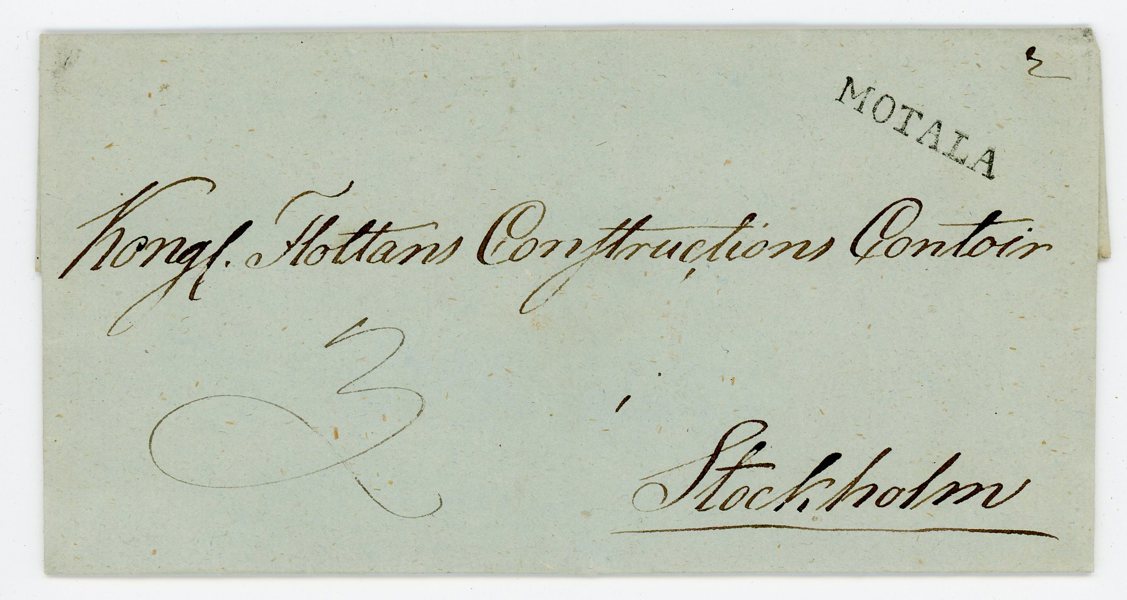 2
MOTALA
Kongl. Flottans Constructions Contoir
Stockholm